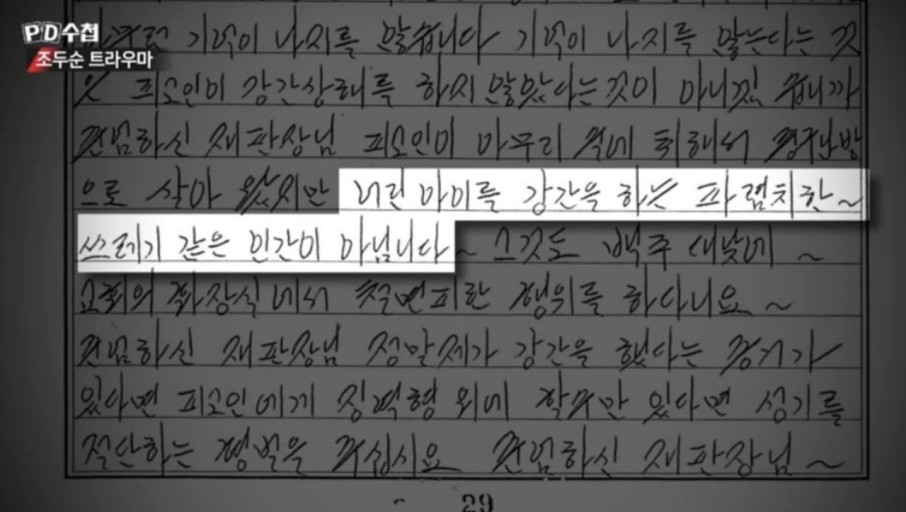 PD수첩
조두순 트라우마
기억이 나지를 않습니다 기억이 나지를 않는다는 것
은 피고인이 강간상해를 하지 않았다는 것이 아니겠습니까
존엄하신 재판장님 피고인이 아무리 술에 취해서
으로 살아 왔지만 어린 아이를 강간을 하는 파렴치한~
쓰레기 같은 인간이 아닙니다~ 그것도 백주 대낮에 ~
교회의 화장실에서 철면피한 행위를 하다니요~
존엄하신 재판장님 정말 제가 강간을 했다는 증거가
있다면 피고인에게 징역형 외에 할수만 있다면 성기를
절단하는 형벌을 주십시요 존엄하신 재판장님 ~
29